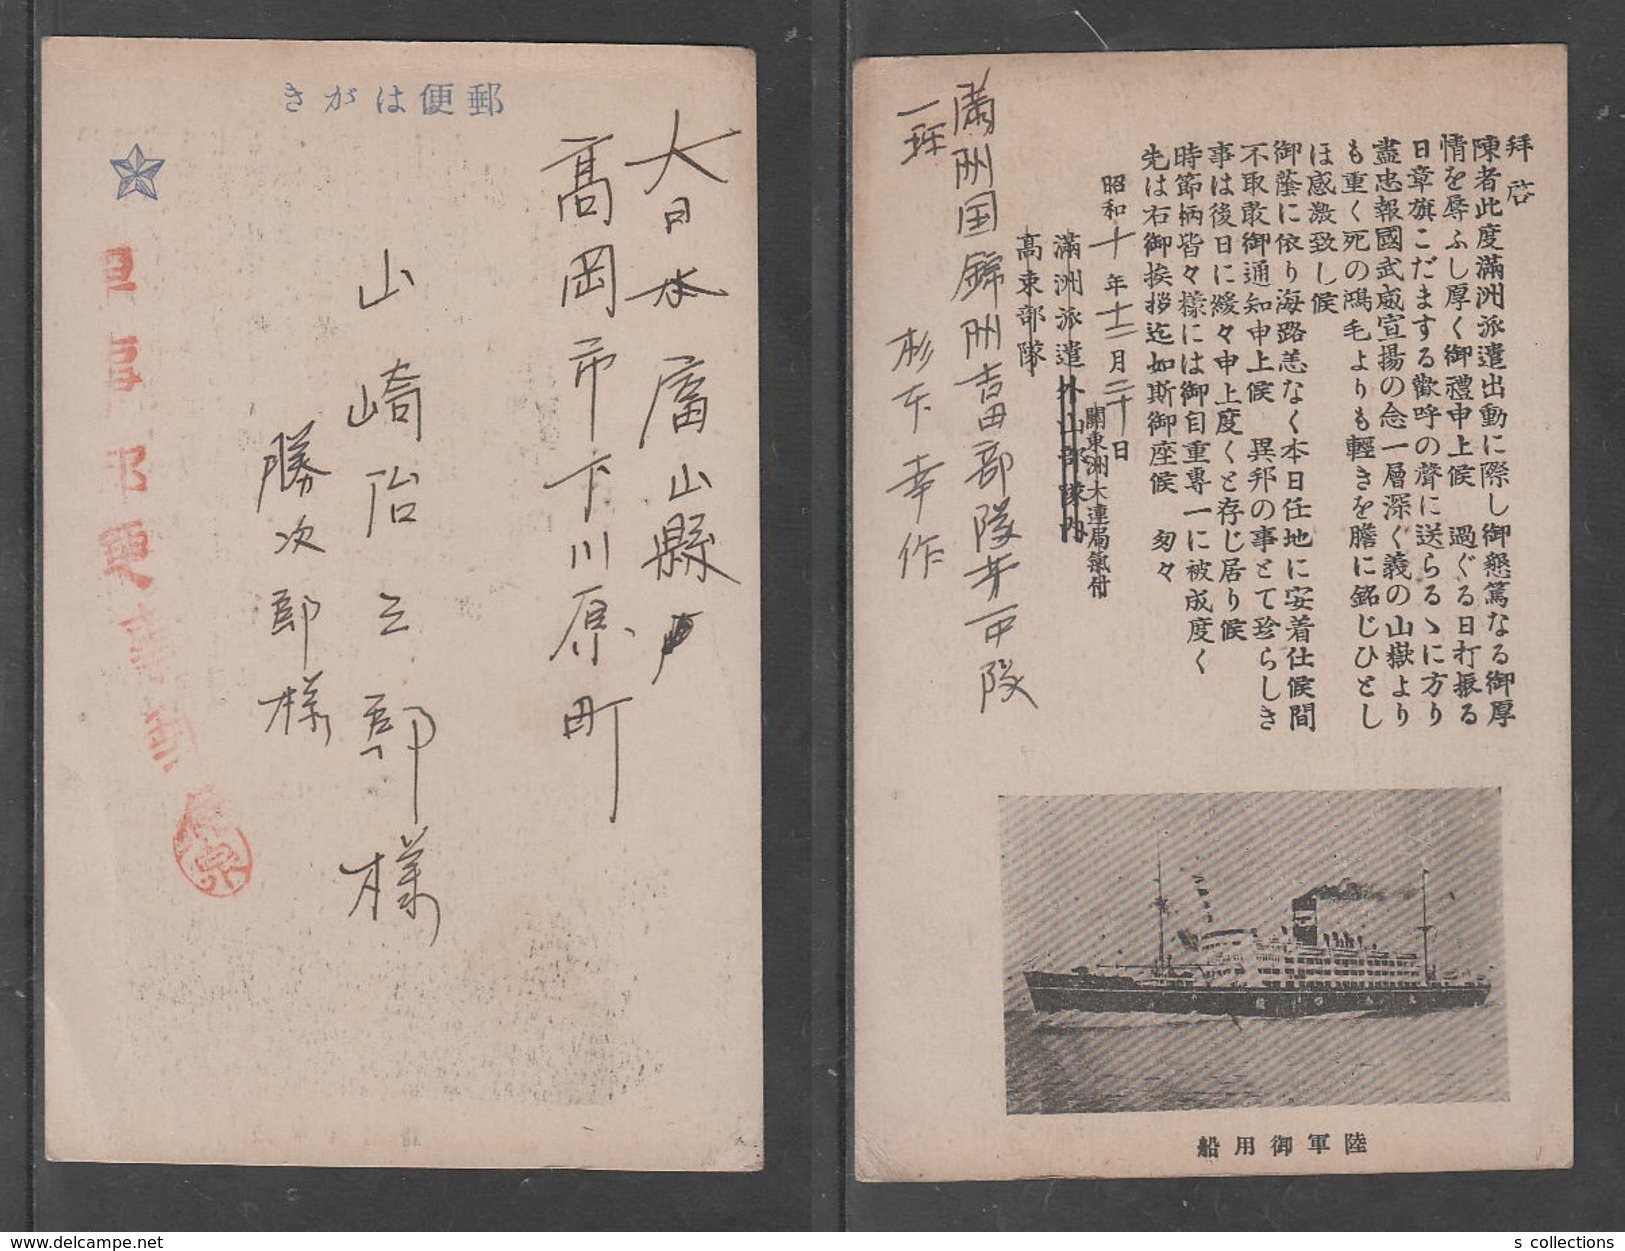 郵便はがき
大日本 富山縣
高岡市下川原町
山崎治三郎様
勝次郎様
軍事郵便
拜啓
陳者此度滿洲派遣出動に際し御懇篤なる御厚
情を辱ふし厚く御禮申上候 過ぐる日打振る
日章旗こだまする歡呼の聲に送らるゝに方り
盡忠報國武威宣揚の念一層深く義の山嶽より
も重く死の鴻毛よりも輕きを膽に銘じひとし
ほ感激致し候
御蔭に依り海路恙なく本日任地に安着仕候間
不取敢御通知申上候 異邦の事とて珍らしき
事は後日に緩々申上度くと存じ居り候
時節柄皆々樣には御自重專一に被成度く
先は右御挨拶迄如斯御座候 匆々
昭和十年十二月二十日
關東洲大連局氣付
滿洲派遣外山部隊内
高東部隊
満洲国錦州吉田部隊
杉本幸作
陸軍御用船
s collections